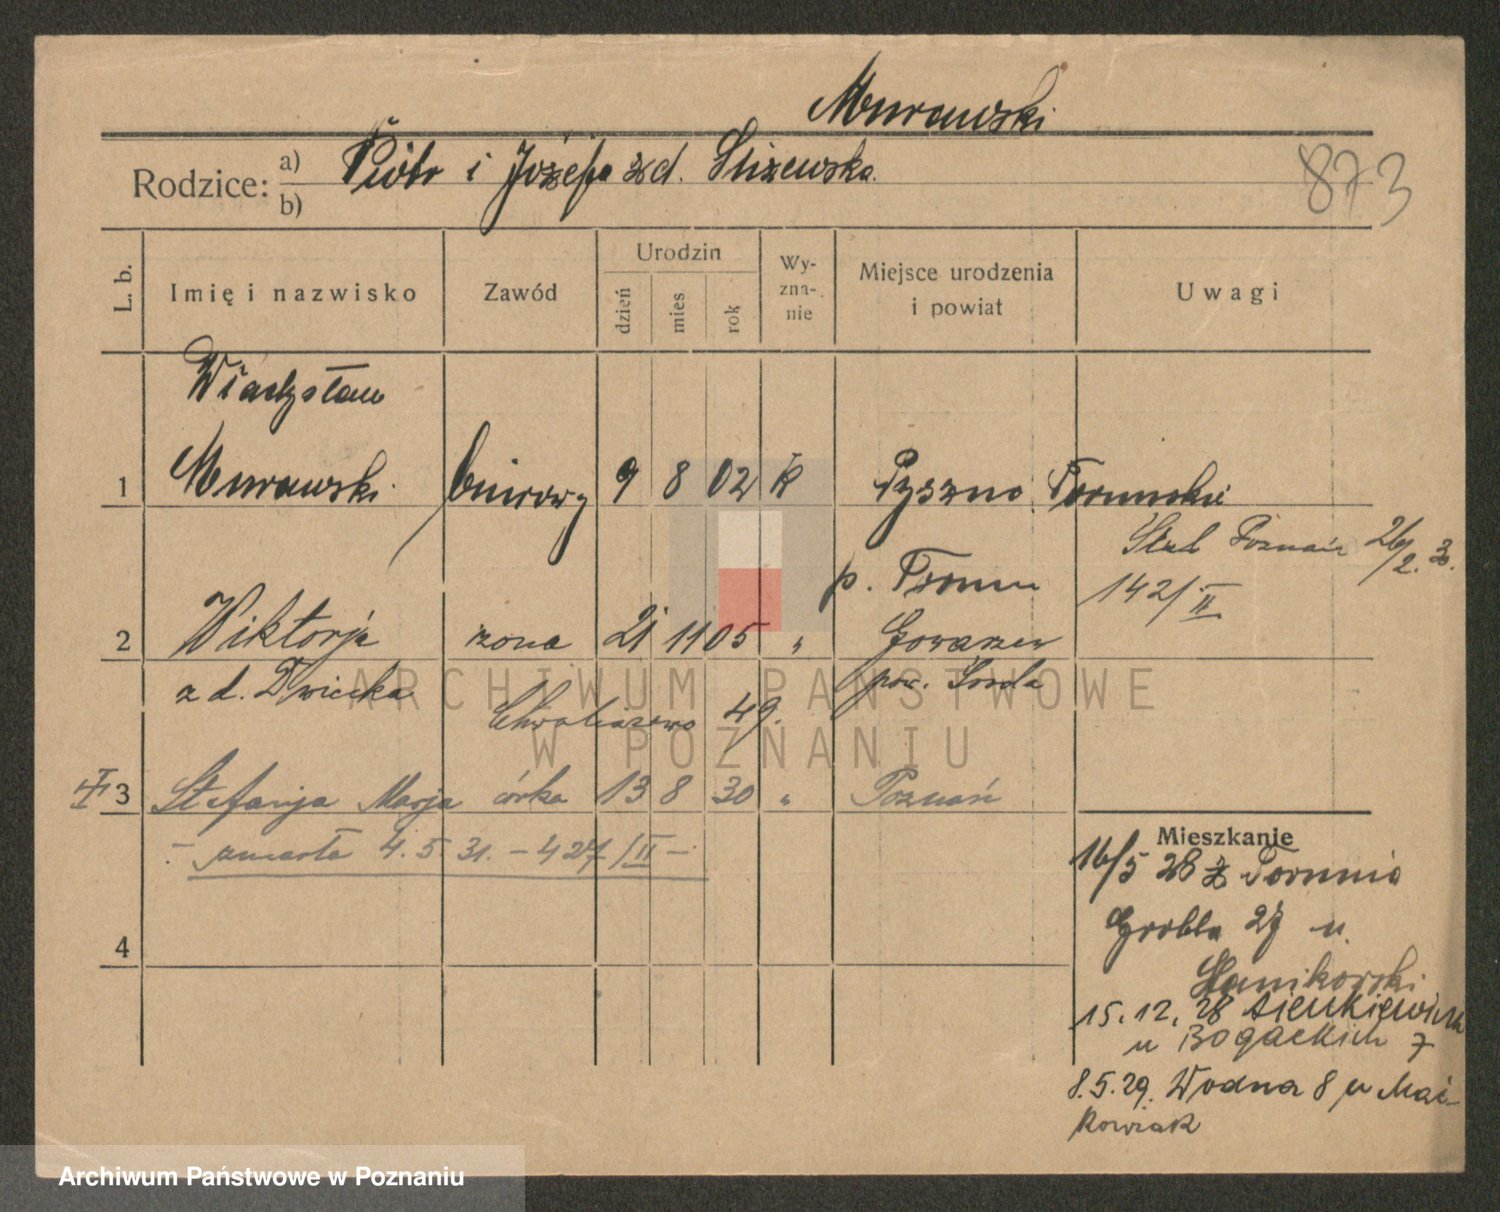 Murawski
Rodzice: a) b) Piotr i Józefa z d.
873
L. b. Imię i nazwisko Zawód Urodzin dzień mies rok Wy-zna-nie Miejsce urodzenia i powiat Uwagi
Władysław
1 Murawski biurowy 9 8 02 k Pyszno Toruński
Ślub Poznań 26/2. 3.
p. Tromm 142/II
2 Wiktorja żona 21 11 05 „ Gowarzew
z d. Dwicka pow. Środa
Chwaliszewo 49.
3 Stefanja Marja córka 13 8 30 „ Poznań
- zmarła 4. 5. 31. - 427/II -
Mieszkanie
16/5 28 z Torunia
4 Grobla 27 u
15. 12. 28 Sienkiewicza
u Bogackich 7
8. 5. 29. Wodna 8 u Mać-
kowiak
ARCHIWUM PAŃSTWOWE
W POZNANIU
Archiwum Państwowe w Poznaniu